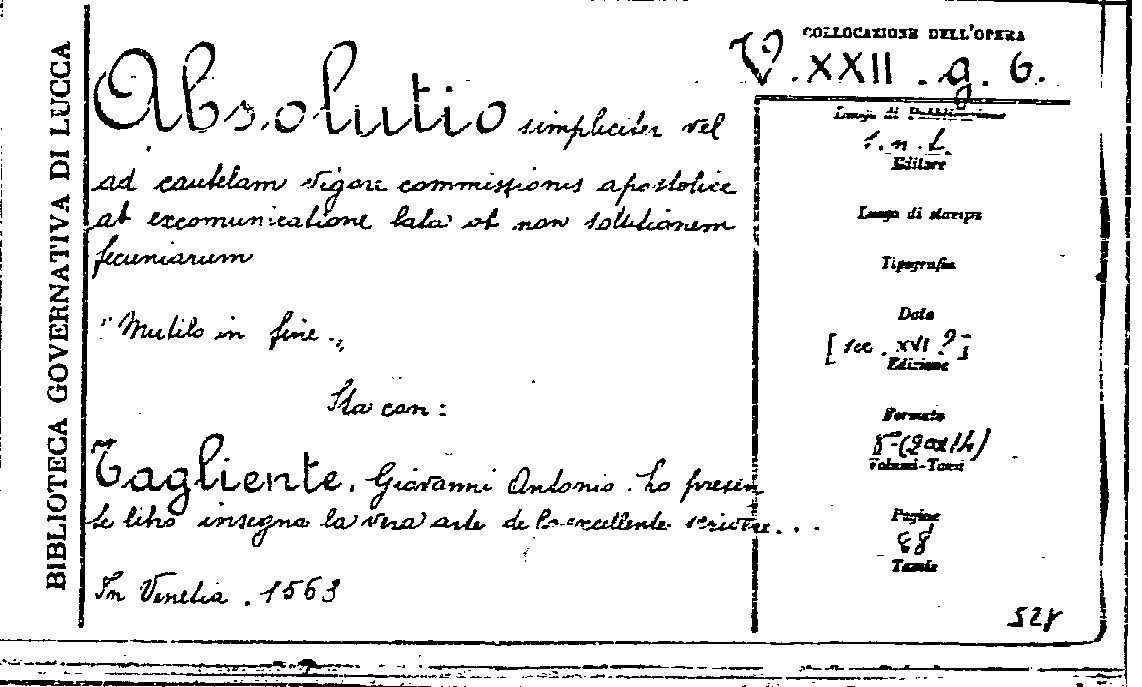 BIBLIOTECA GOVERNATIVA DI LUCCA
Absolutio simpliciter vel
ad cautelam vigore commissionis apostolice
ab excomunicatione lata ob non solutionem
pecuniarum
"Mutilo in fine.,,
Sta con:
Tagliente. Giovanni Antonio. Lo presen
te libro insegna la vera arte de lo excellente scrivere...
In Venetia. 1563
COLLOCAZIONE DELL'OPERA
V. XXII. g. 6.
Luogo di Pubblicazione
s. n. t.
Editore
Luogo di stampa
Tipografia
Data
[sec. XVI?]
Edizione
Formato
8-(20x14)
Volumi-Tomi
Pagine
Tavole
528